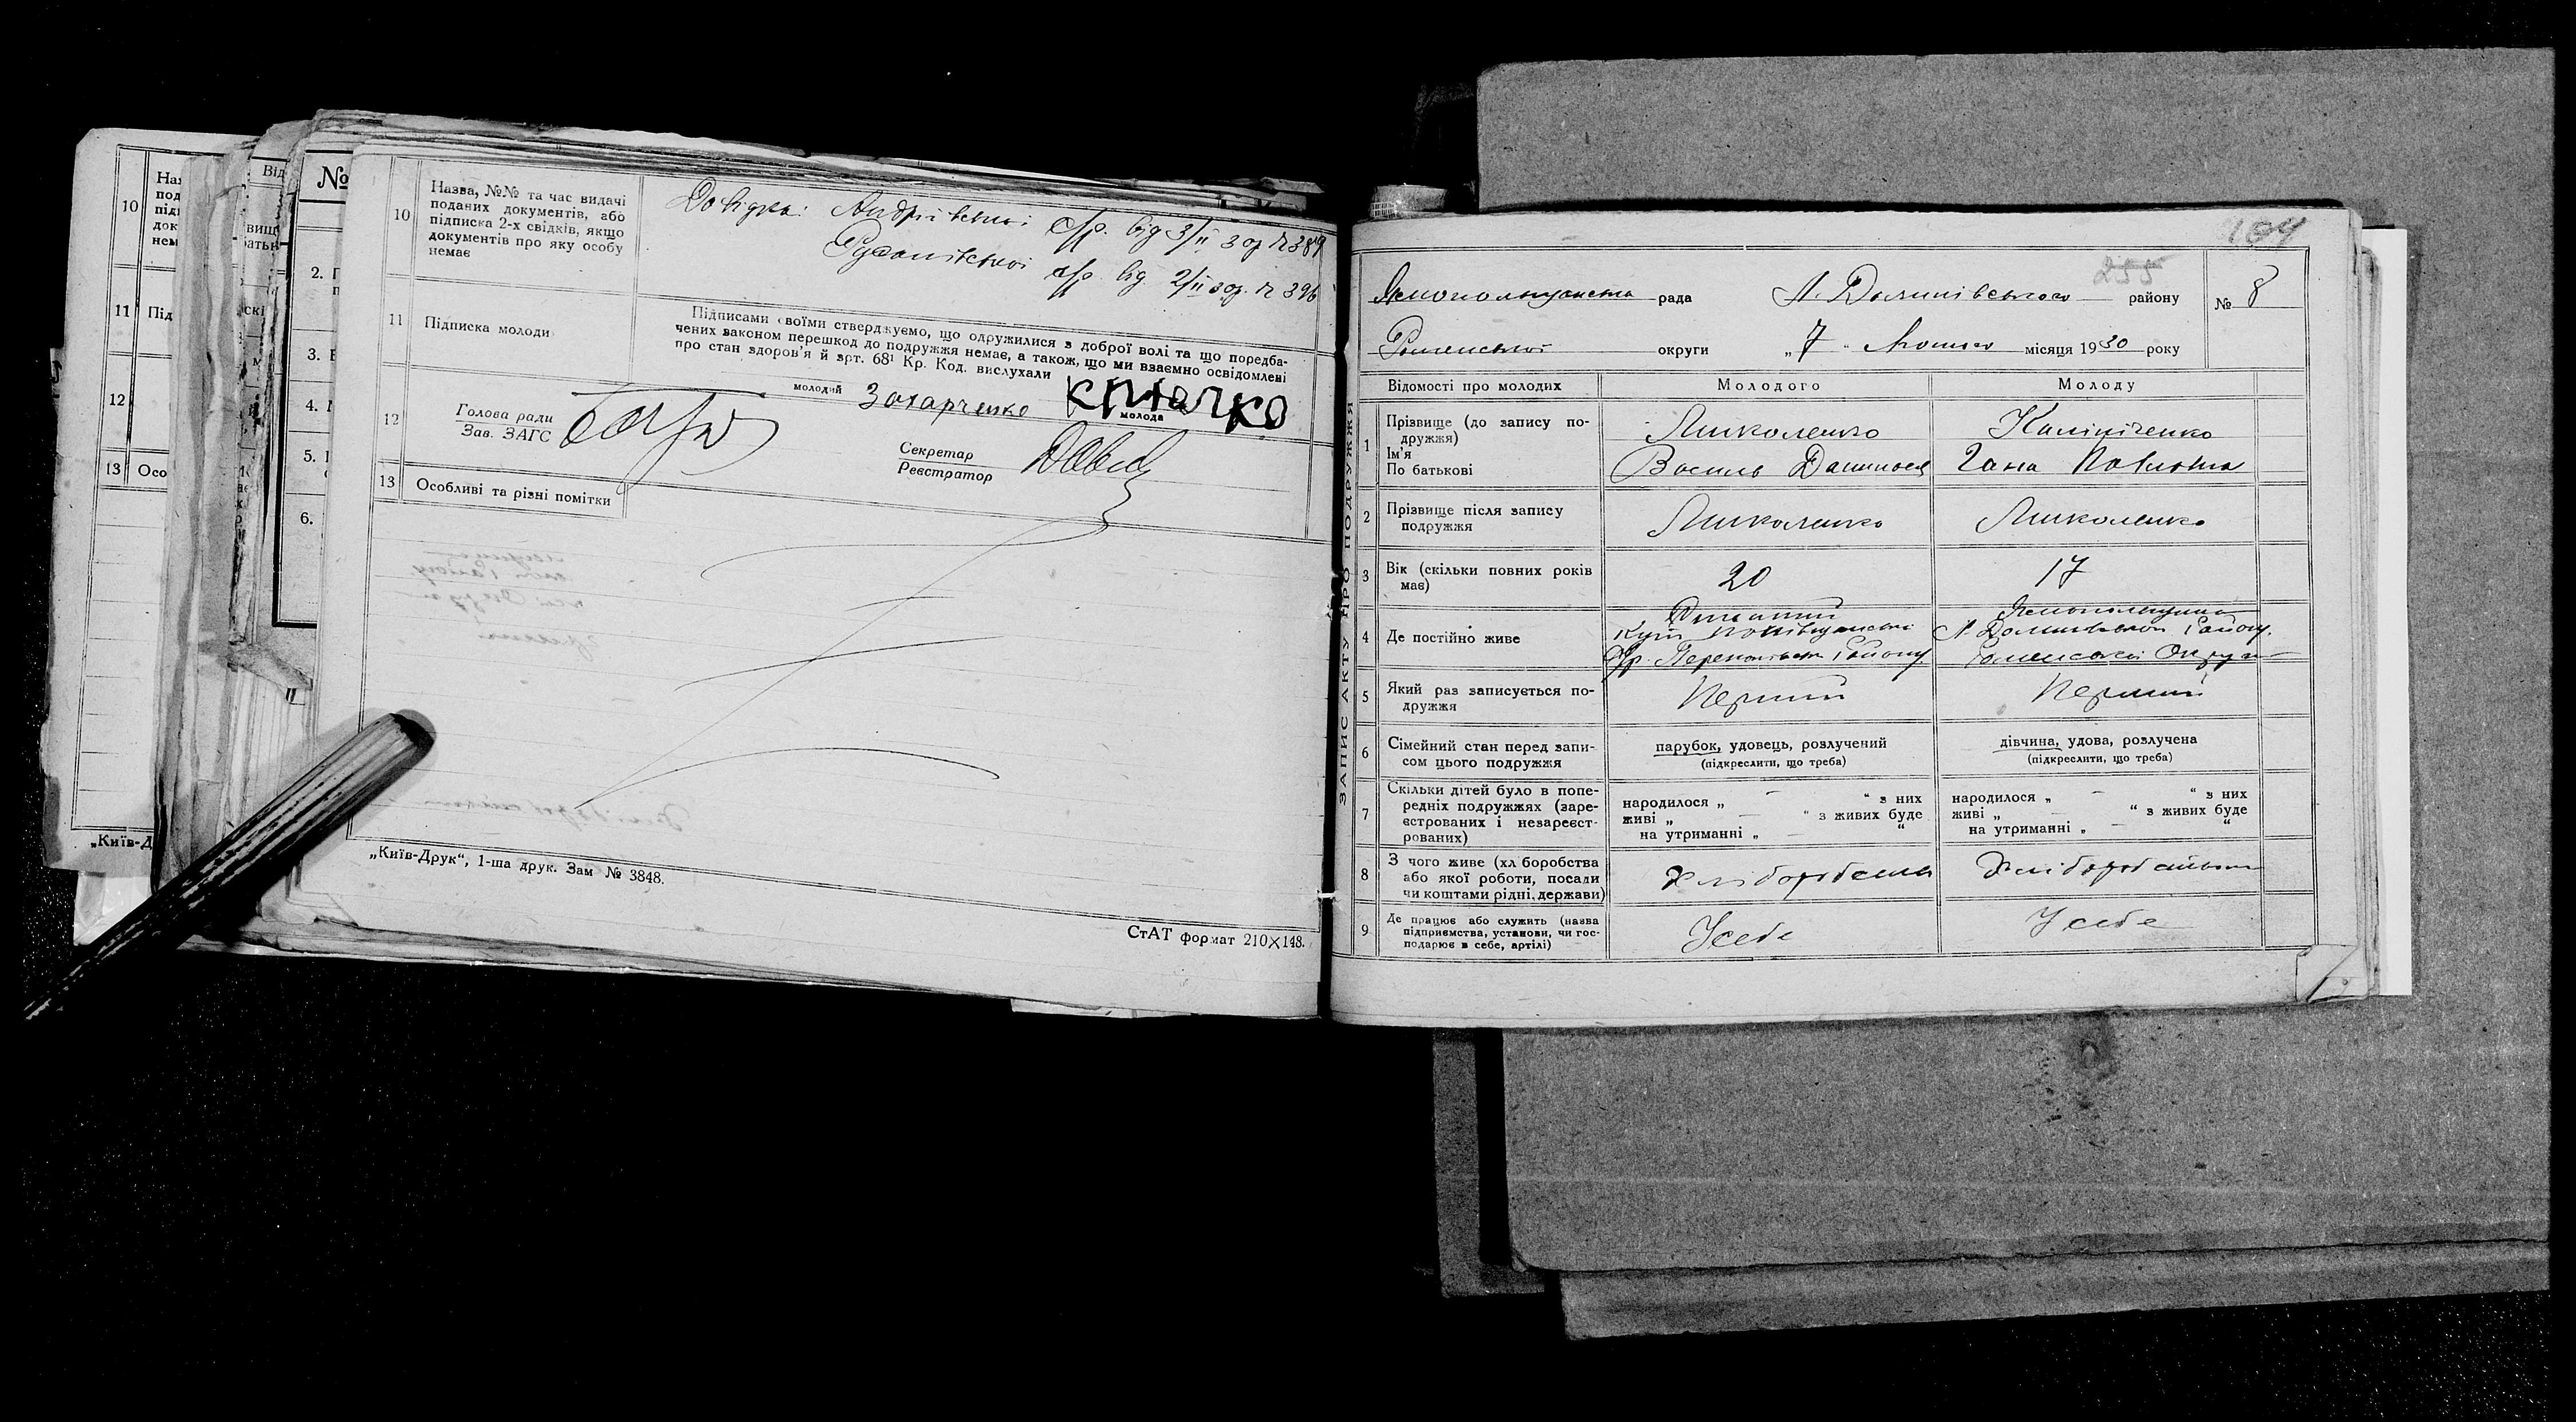 10
Назва, №№ та час видачі
поданих документів, або
підписка 2-х свідків, якщо
документів про яку особу
немає
Довідка: Андріївської с/р. від 3/II 30 р № 389
с/р. від 2/II 30 р. № 396
11
Підписка молоди
Підписами своїми стверджуємо, що одружилися з доброї волі та що поредба-
чених законом перешкод до подружжя немає, а також, що ми взаємно освідомлені
про стан здоров'я й зрт. 68¹ Кр. Код. вислухали
молодий Захарченко
молода
12
Голова ради
Зав. ЗАГС
Секретар
Реєстратор
13
Особливі та різні помітки
„Київ-Друк“, 1-ша друк. Зам № 3848.
СтАТ формат 210×148.
10
11 Під
12
13 Осо
„Київ-Д
№
2.
3.
4.
5.
6.
164
рада
району
№ 8
Роменської округи „7“ Лютого місяця 1930 року
ЗАПИС АКТУ ПРО ПОДРУЖЖЯ
Відомості про молодих
Молодого
Молоду
1
Прізвище (до запису по-
дружжя)
Ім'я
По батькові
Миколенко
Василь
Калініченко
Гана Павловна
2
Прізвище після запису
подружжя
Миколенко
Миколенко
3
Вік (скільки повних років
має)
20
17
4
Де постійно живе
с/р. району
району.
Роменської Округи
5
Який раз записується по-
дружжя
Перший
Перший
6
Сімейний стан перед запи-
сом цього подружжя
парубок, удовець, розлучений
(підкреслити, що треба)
дівчина, удова, розлучена
(підкреслити, що треба)
7
Скільки дітей було в попе-
редніх подружжях (заре-
єстрованих і незареєст-
рованих)
народилося „ — “ з них
живі „ — “ з живих буде
на утриманні „ — “
народилося „ — “ з них
живі „ — “ з живих буде
на утриманні „ — “
8
З чого живе (хл боробства
або якої роботи, посади
чи коштами рідні, держави)
Хліборобства
Хліборобством
9
Де працює або служить (назва
підприємства, установи, чи гос-
подарює в себе, артілі)
У себе
У себе